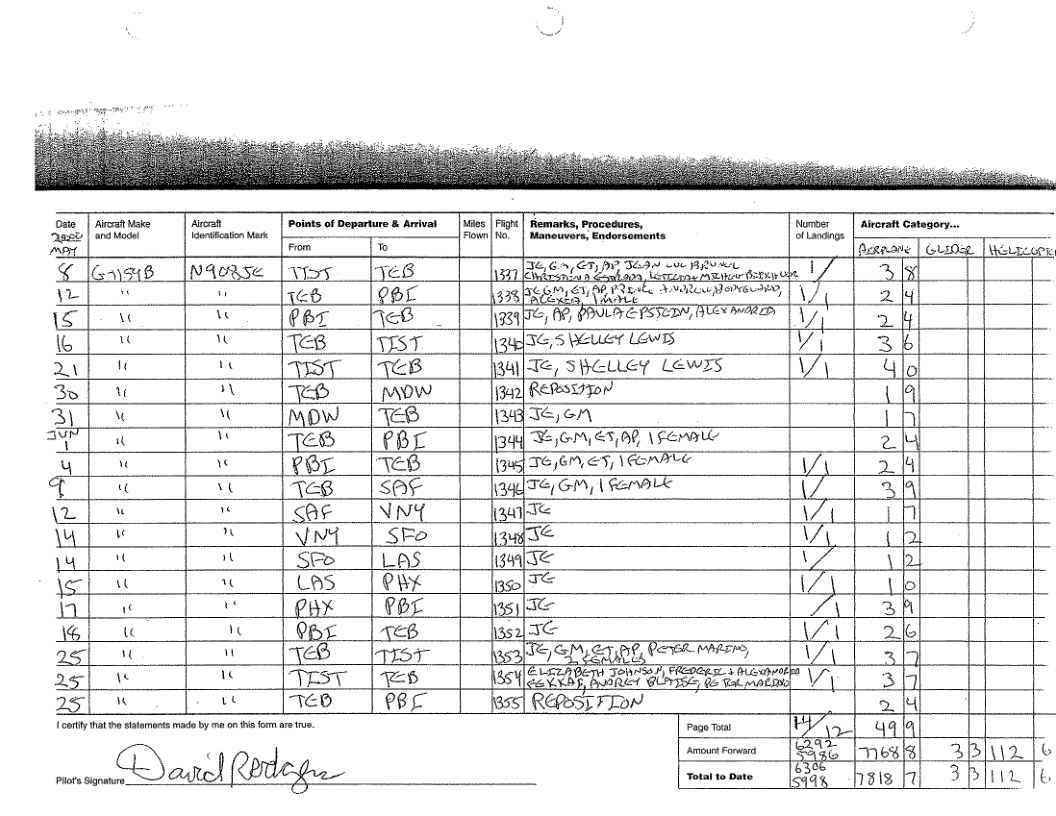 Date Aircraft Make and Model Aircraft Identification Mark Points of Departure & Arrival Miles Flown Flight No. Remarks, Procedures, Maneuvers, Endorsements Number of Landings Aircraft Category...
2000 MAY From To AIRPLANE GLIDER HELICOPTER
8 G1159B N908JE TIST TEB 1337 JE, GM, ET, AP, JEAN LUC BRUNEL 1/ 3 8
12 " " TEB PBI 1338 JE, GM, ET, AP, PRINCE ANDREW, BODYGUARD, 1 MALE 1/1 2 4
15 " " PBI TEB 1339 JE, AP, PAULA EPSTEIN, ALEXANDRIA 1/1 2 4
16 " " TEB TIST 1340 JE, SHELLEY LEWIS 1/1 3 6
21 " " TIST TEB 1341 JE, SHELLEY LEWIS 1/1 4 0
30 " " TEB MDW 1342 REPOSITION 1 9
31 " " MDW TEB 1343 JE, GM 1 7
JUN 1 " " TEB PBI 1344 JE, GM, ET, AP, 1 FEMALE 2 4
4 " " PBI TEB 1345 JE, GM, ET, 1 FEMALE 1/1 2 4
9 " " TEB SAF 1346 JE, GM, 1 FEMALE 1/ 3 9
12 " " SAF VNY 1347 JE 1/1 1 7
14 " " VNY SFO 1348 JE 1/1 1 2
14 " " SFO LAS 1349 JE 1/ 1 2
15 " " LAS PHX 1350 JE 1/1 1 0
17 " " PHX PBI 1351 JE /1 3 9
18 " " PBI TEB 1352 JE 1/1 2 6
25 " " TEB TIST 1353 JE, GM, ET, AP, PETER MARINO, 2 FEMALES 1/1 3 7
25 " " TIST TEB 1354 ELIZABETH JOHNSON, FREDERIC + ALEXANDRIA FEKKAI, AUDREY BLAISE, PETER MARINO 1/1 3 7
25 " " TEB PBI 1355 REPOSITION 2 4
I certify that the statements made by me on this form are true. Page Total 14/12 49 9
Amount Forward 6292 5986 7768 8 3 3 112 6
Pilot's Signature David Rodgers Total to Date 6306 5998 7818 7 3 3 112 6